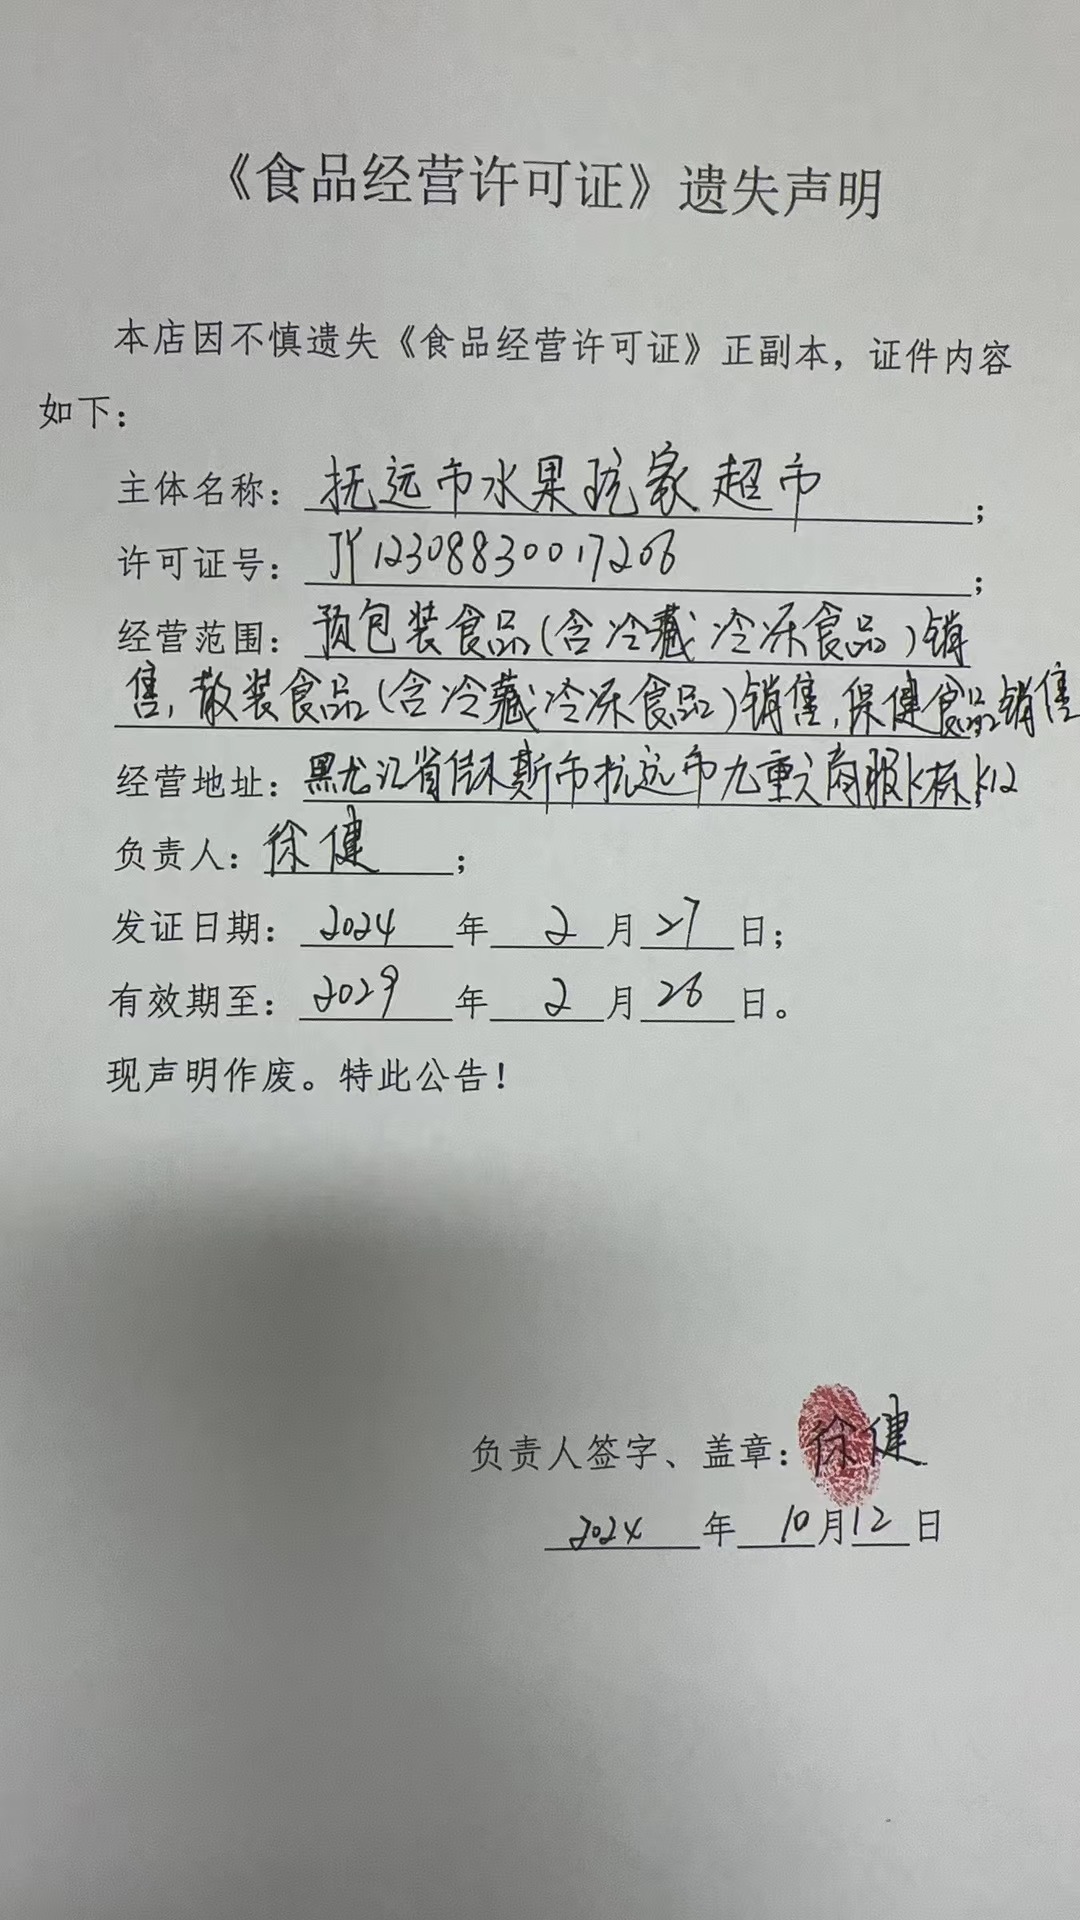 《食品经营许可证》遗失声明
本店因不慎遗失《食品经营许可证》正副本，证件内容
如下：
主体名称：抚远市水果玩家超市；
许可证号：JY12308830017206；
经营范围：预包装食品(含冷藏冷冻食品)销
售，散装食品(含冷藏冷冻食品)销售，保健食品销售
经营地址：黑龙江省佳木斯市抚远市九重天商服K栋K12
负责人：徐健；
发证日期：2024年2月27日；
有效期至：2029年2月26日。
现声明作废。特此公告！
负责人签字、盖章：徐健
2024年10月12日